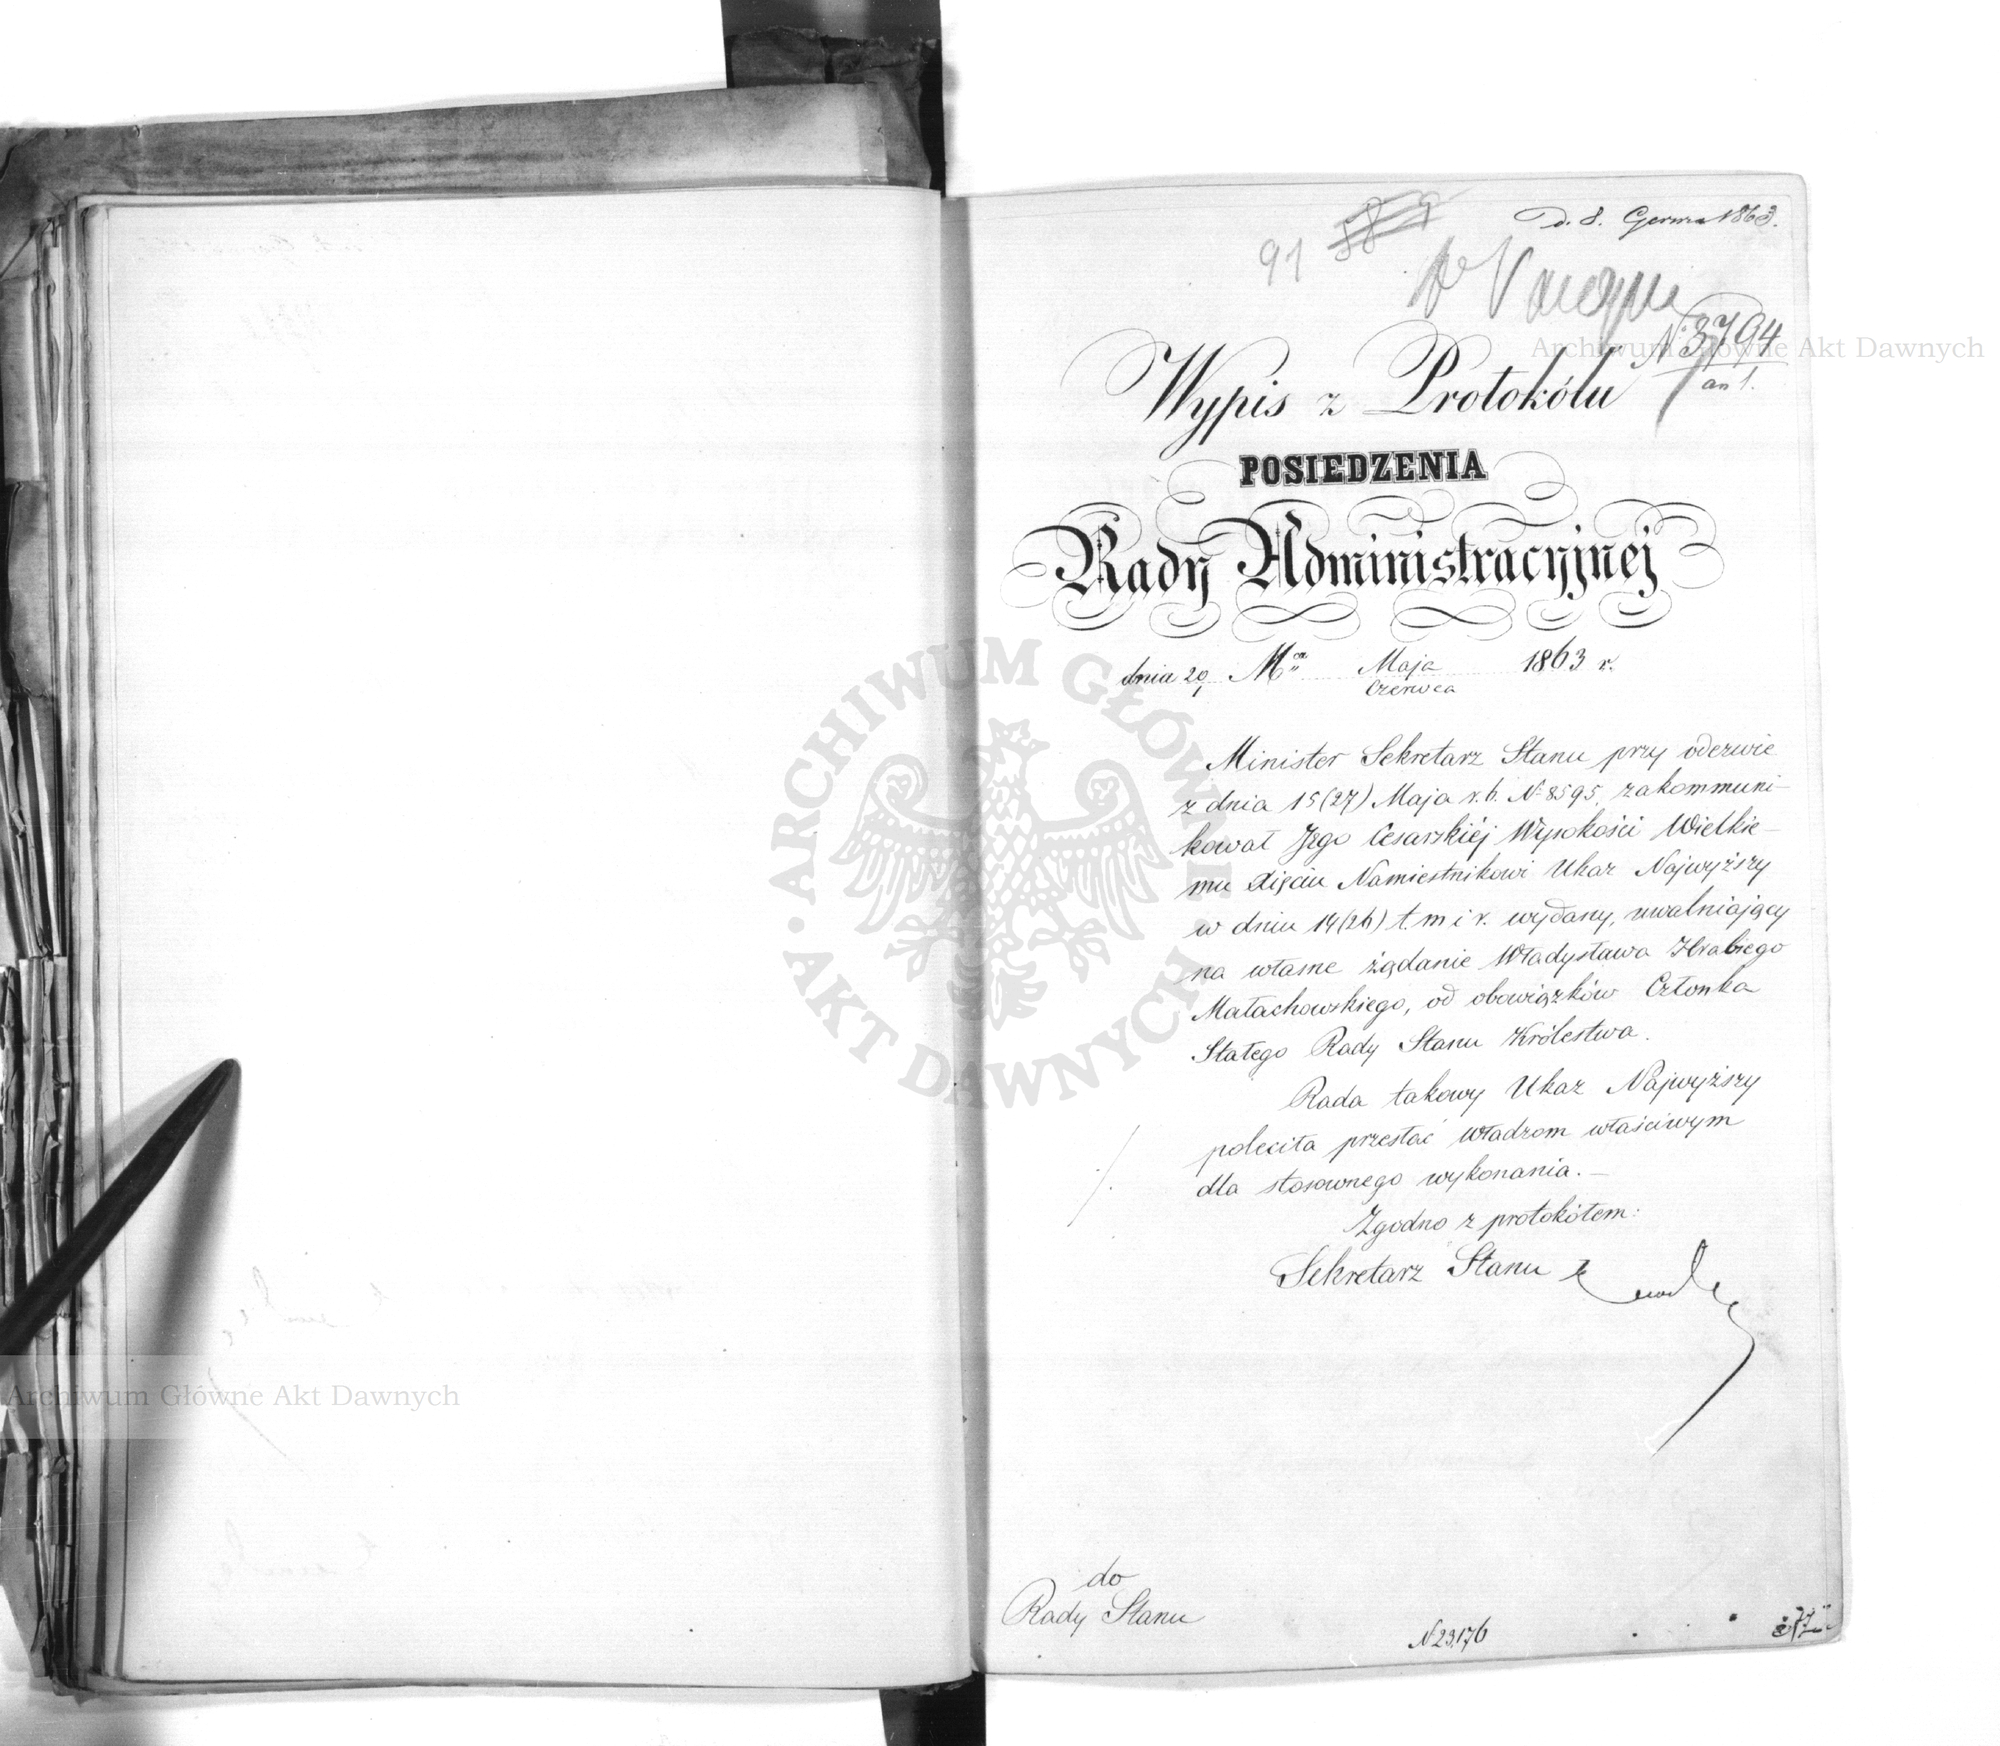 D. 8. Czerwca 1863.
91
Nº 3794
an 1.
Wypis z Protokólu
POSIEDZENIA
Rady Administracyjnej
dnia 20/1 Mca Maja/Czerwca 1863 r.
Minister Sekretarz Stanu przy odezwie
z dnia 15(27) Maja r. b. Nº 8595, zakommuni-
kował Jego Cesarskiéj Wysokości Wielkie-
mu Xięciu Namiestnikowi Ukaz Najwyższy
w dniu 14(26) t. m i r. wydany, uwalniający
na własne żądanie Władysława Hrabiego
Małachowskiego, od obowiązków Członka
Stałego Rady Stanu Królestwa.
Rada takowy Ukaz Najwyższy
poleciła przesłać Władzom właściwym
dla stosownego wykonania. —
Zgodno z protokółem:
Sekretarz Stanu
do
Rady Stanu
N 23176
Archiwum Główne Akt Dawnych
Archiwum Główne Akt Dawnych
ARCHIWUM GŁÓWNE · AKT DAWNYCH ·